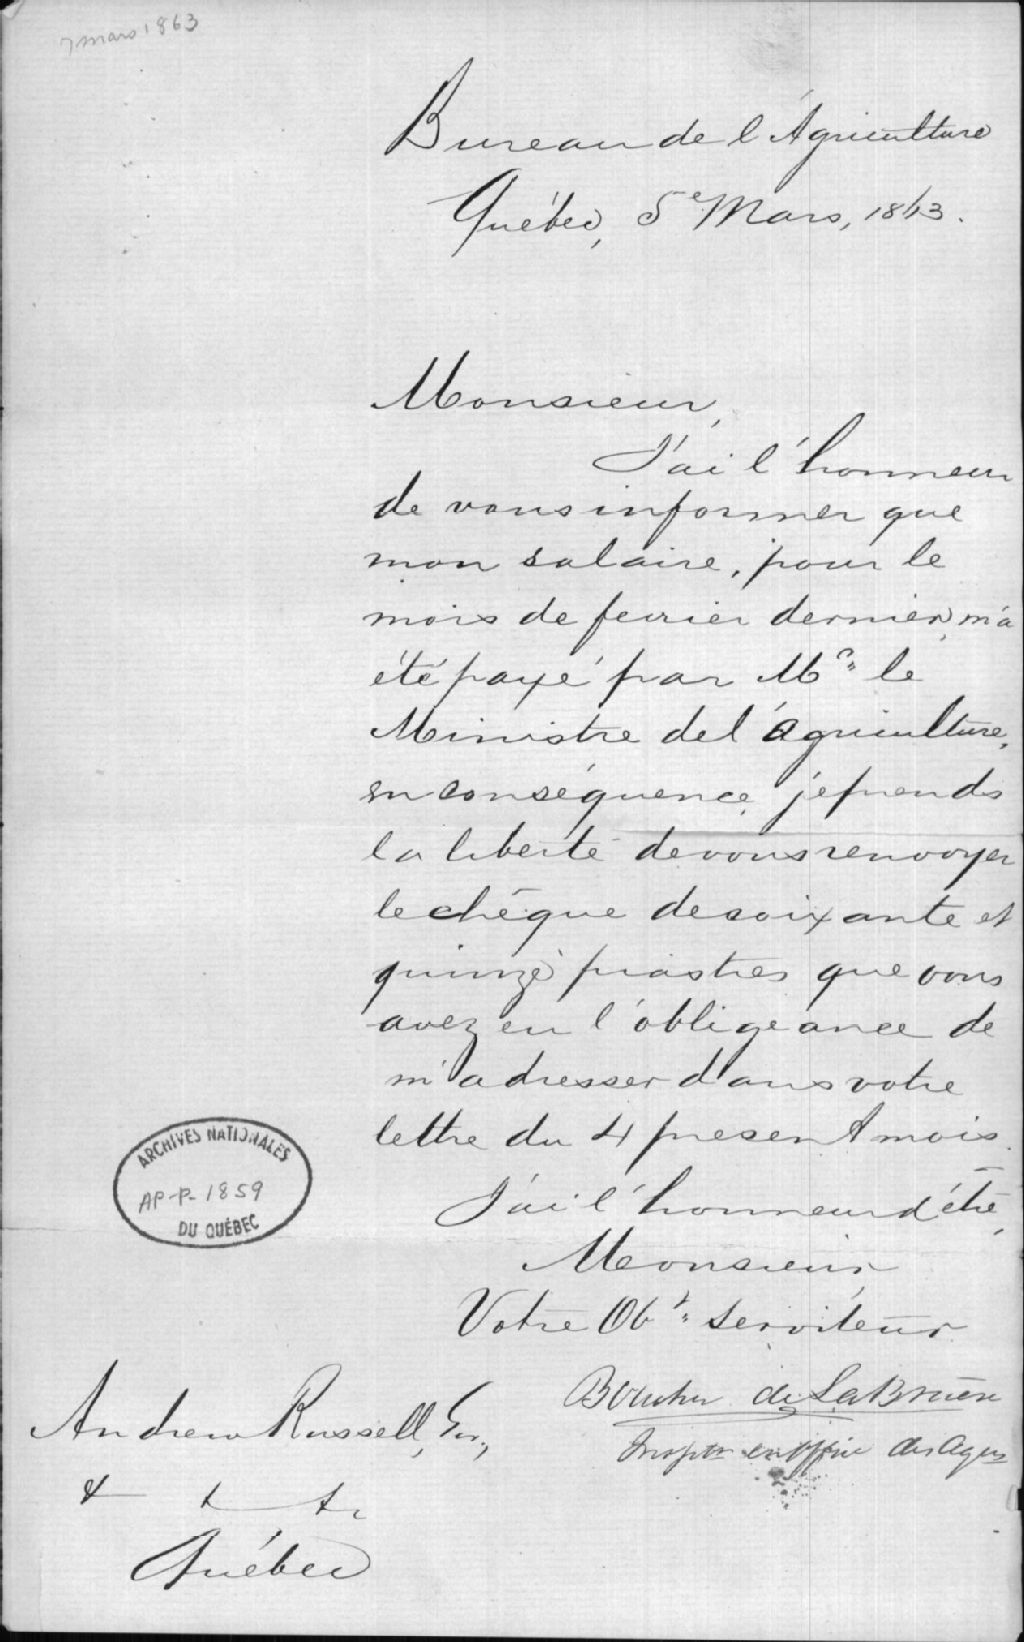 7 mars 1863
Bureau de l'Agriculture
Québec, 5e Mars, 1863.
Monsieur,
J'ai l'honneur
de vous informer que
mon salaire, pour le
mois de fevrier dernier, m'a
été payé par Mr. le
Ministre de l'agriculture,
en conséquence, je prends
la liberté de vous renvoyer
le chéque de soixante et
quinze piastres que vous
avez eu l'obligeance de
m'adresser dans votre
lettre du 4 present mois.
J'ai l'honneur d'être,
Monsieur,
Votre Obt. serviteur
Boucher de LaBruère
Insptr en des Ages
Andrew Russell, Esr,
& & &c
Québec
ARCHIVES NATIONALES
AP-P-1859
DU QUÉBEC